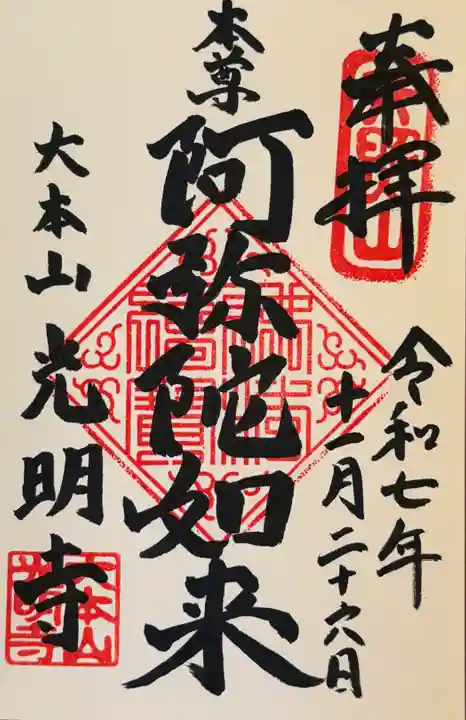 奉拝
令和七年
十一月二十六日
本尊
阿弥陀如来
大本山 光明寺